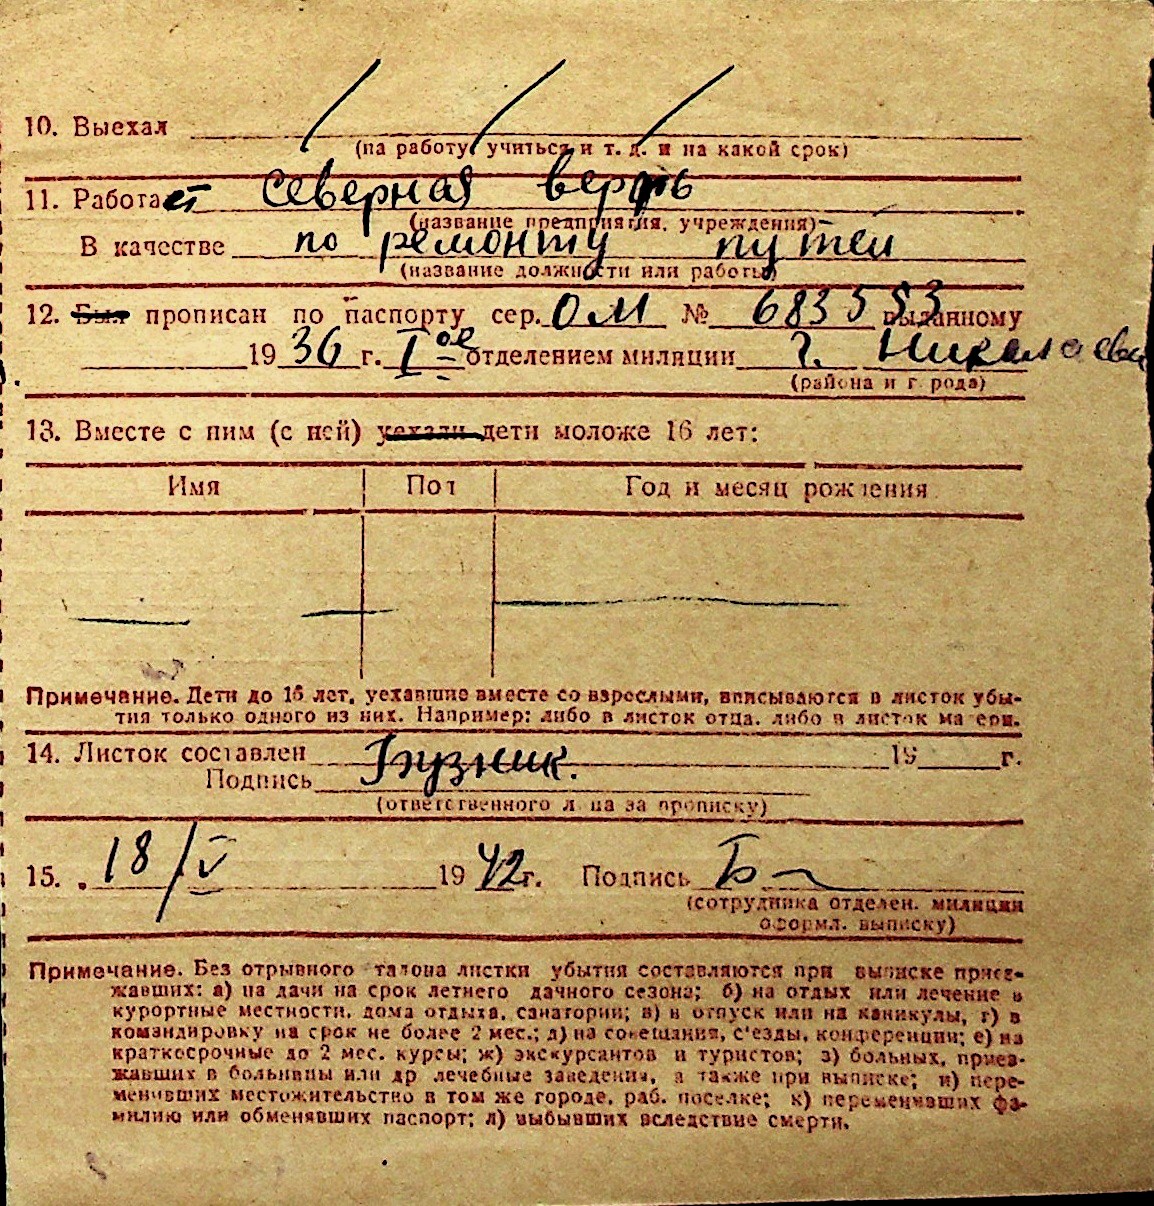 10. Выехал
(на работу, учиться и т. д. и на какой срок)
11. Работает Северная верфь
(название предприятия, учреждения)
В качестве по ремонту путей
(название должности или работы)
12. Был прописан по паспорту сер. ОМ № 683553 выданному
1936 г. Iое отделением милиции г. Николаева
(района и города)
13. Вместе с ним (с ней) уехали дети моложе 16 лет:
Имя Пол Год и месяц рождения
Примечание. Дети до 16 лет, уехавшие вместе со взрослыми, вписываются в листок убы-
тия только одного из них. Например: либо в листок отца, либо в листок матери.
14. Листок составлен 19 г.
Подпись Бузник.
(ответственного лица за прописку)
15. 18/V 1942 г. Подпись
(сотрудника отделен. милиции
оформл. выписку)
Примечание. Без отрывного талона листки убытия составляются при выписке приез-
жавших: а) на дачи на срок летнего дачного сезона; б) на отдых или лечение в
курортные местности, дома отдыха, санатории; в) в отпуск или на каникулы, г) в
командировку на срок не более 2 мес.; д) на совещания, с'езды, конференции; е) на
краткосрочные до 2 мес. курсы; ж) экскурсантов и туристов; з) больных, приез-
жавших в больницы или др лечебные заведения, а также при выписке; и) пере-
менивших местожительство в том же городе, раб. поселке; к) переменивших фа-
милию или обменявших паспорт; л) выбывших вследствие смерти.